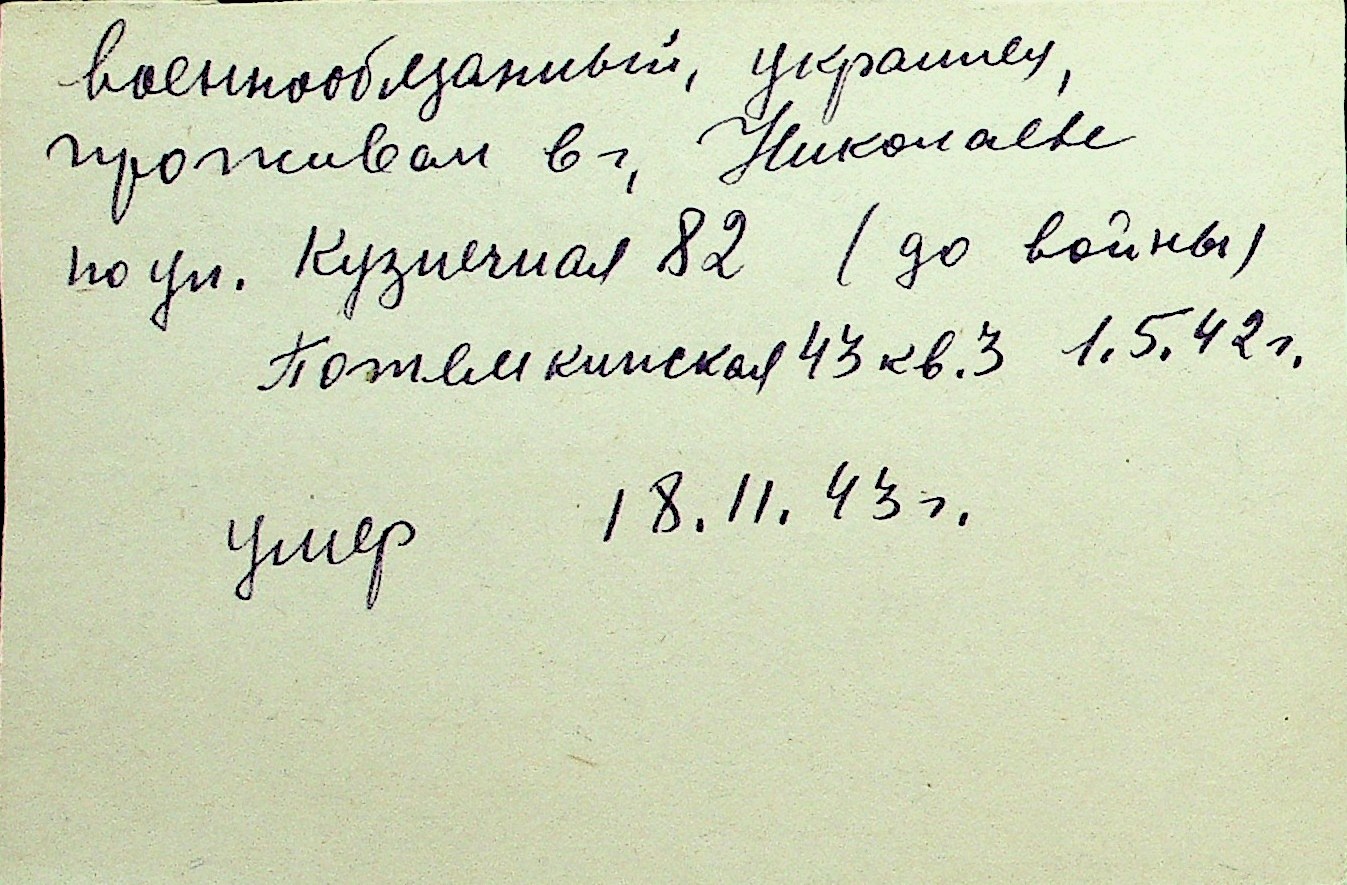 военнообязанный, украинец,
проживал в г. Николаеве
по ул. Кузнечная 82 (до войны)
Потемкинская 43 кв. 3 1.5.42 г.
умер 18.11.43 г.